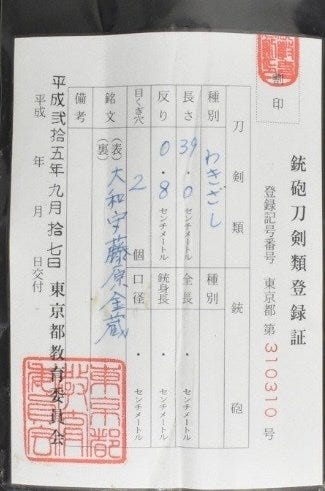 銃砲刀剣類登録証
登録記号番号 東京都 第 310310 号
割印
刀剣類 銃砲
種別 わきざし 種別
長さ 39.0 センチメートル 全長 センチメートル
反り 0.8 センチメートル 銃身長 センチメートル
目くぎ穴 2 個 口径 センチメートル
銘文 (表) 大和守藤原金蔵
(裏)
備考
平成弐拾五年九月拾七日 東京都教育委員会
平成 年 月 日交付
東京都教育委員会